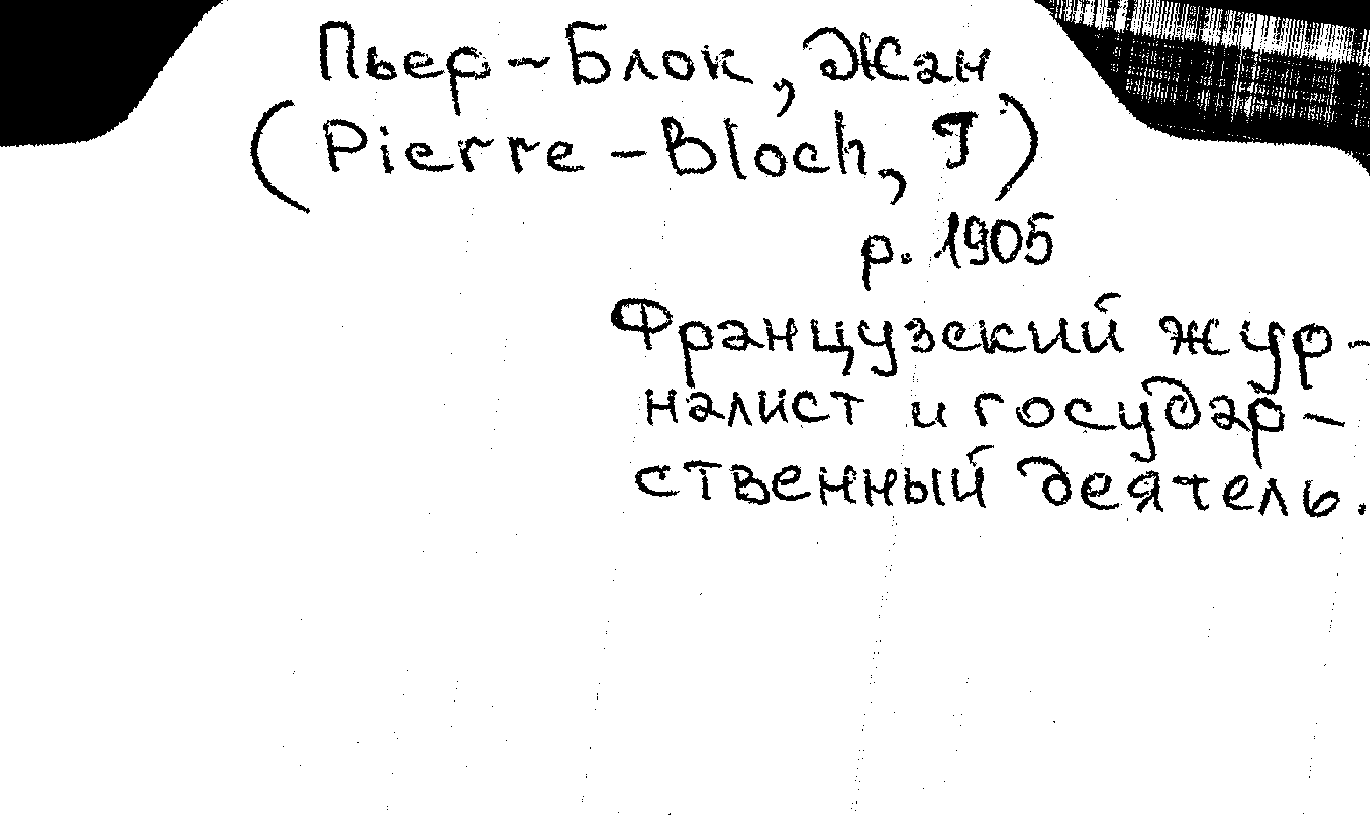 Пьер-Блок, Жан
(Pierre-Bloch, J)
р. 1905
Французский жур-
налист и государ-
ственный деятель.